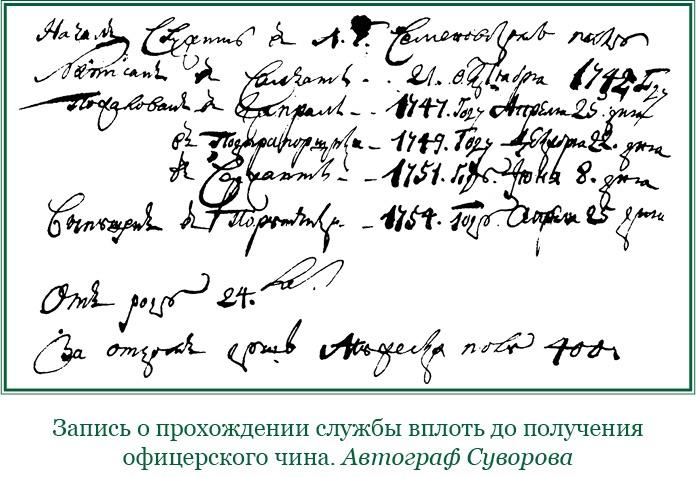 Началъ Служить в Л. Г. Семеновскомъ полку
в Салдаты - - 21. Октября 1742 Году
Пожалованъ в Капралы - - 1747. Году Апреля 25. дня
въ Подпрапорщики - 1749. Году 22. дня
въ Сержанты - - 1751. Году. Июня 8. дня
в Порутчики - - 1754. Году Апреля 25 дня
Отъ роду 24.
За отцомъ душъ полу 400.
Запись о прохождении службы вплоть до получения
офицерского чина. Автограф Суворова